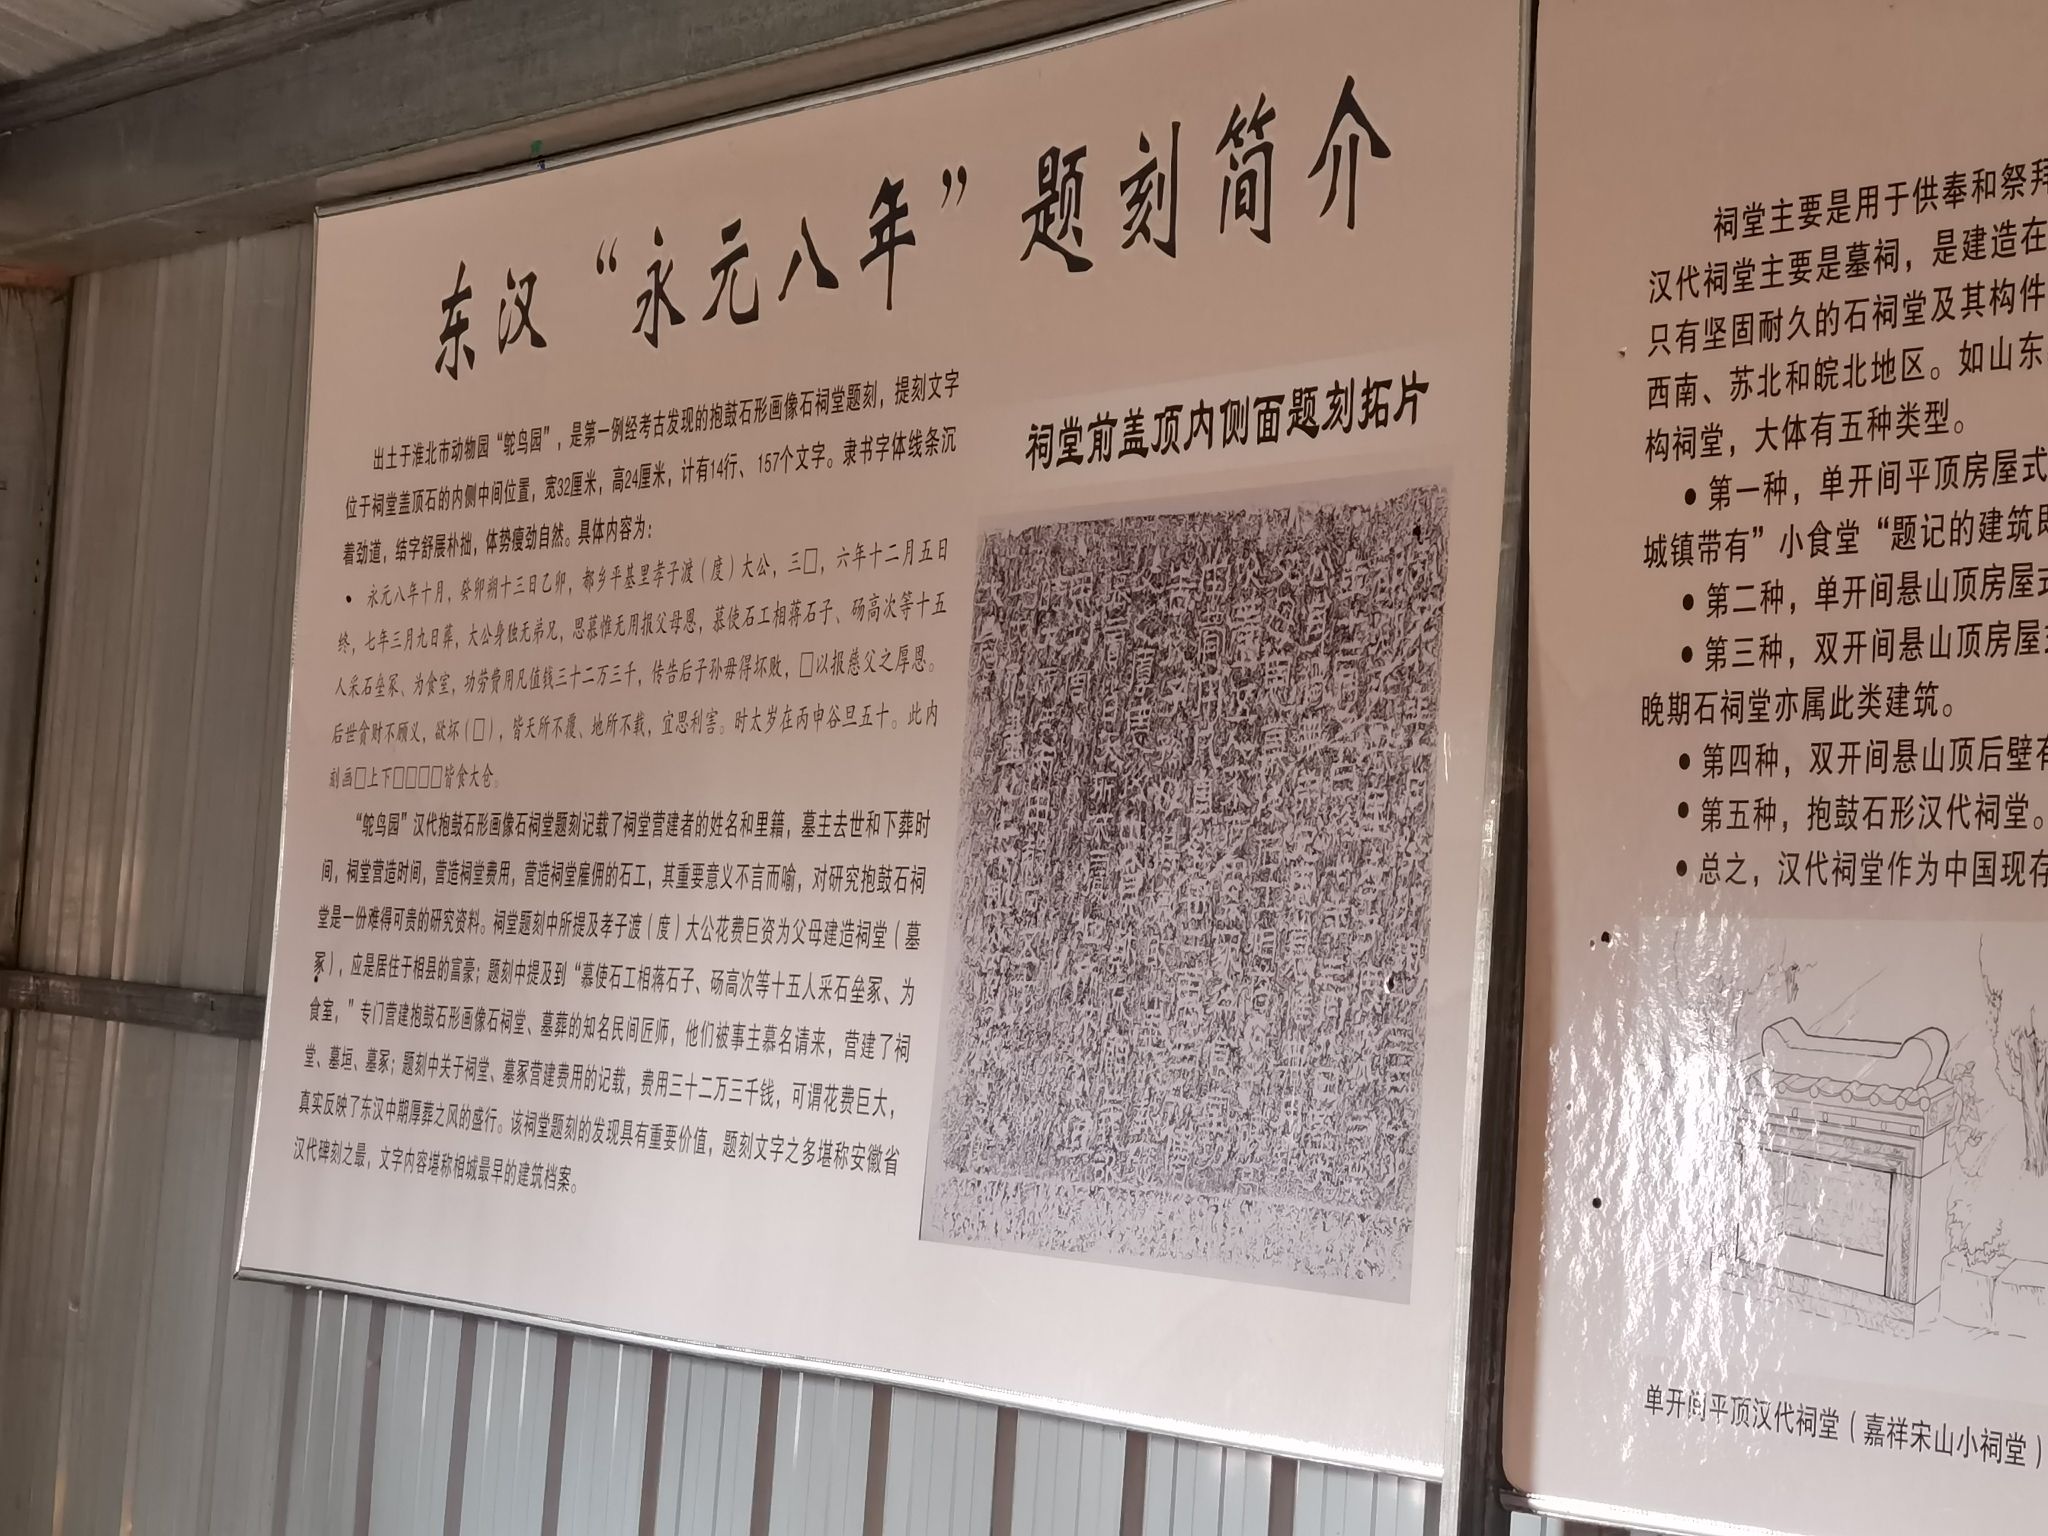 东汉“永元八年”题刻简介
出土于淮北市动物园“鸵鸟园”，是第一例经考古发现的抱鼓石形画像石祠堂题刻，提刻文字
位于祠堂盖顶石的内侧中间位置，宽32厘米，高24厘米，计有14行、157个文字。隶书字体线条沉
着劲道，结字舒展朴拙，体势瘦劲自然。具体内容为：
• 永元八年十月，癸卯朔十三日乙卯，都乡平基里孝子渡（度）大公，三□，六年十二月五日
终，七年三月九日葬，大公身独无弟兄，思慕惟无用报父母恩，募使石工相蒋石子、砀高次等十五
人采石垒冢、为食室，功劳费用凡值钱三十二万三千，传告后子孙毋得坏败，□以报慈父之厚恩。
后世贪财不顾义，欲坏（□），皆天所不覆、地所不载，宜思利害。时太岁在丙申谷旦五十。此内
刻画□上下□□□□皆食大仓。
“鸵鸟园”汉代抱鼓石形画像石祠堂题刻记载了祠堂营建者的姓名和里籍，墓主去世和下葬时
间，祠堂营造时间，营造祠堂费用，营造祠堂雇佣的石工，其重要意义不言而喻，对研究抱鼓石祠
堂是一份难得可贵的研究资料。祠堂题刻中所提及孝子渡（度）大公花费巨资为父母建造祠堂（墓
冢），应是居住于相县的富豪；题刻中提及到“慕使石工相蒋石子、砀高次等十五人采石垒冢、为
食室，”专门营建抱鼓石形画像石祠堂、墓葬的知名民间匠师，他们被事主慕名请来，营建了祠
堂、墓垣、墓冢；题刻中关于祠堂、墓冢营建费用的记载，费用三十二万三千钱，可谓花费巨大，
真实反映了东汉中期厚葬之风的盛行。该祠堂题刻的发现具有重要价值，题刻文字之多堪称安徽省
汉代碑刻之最，文字内容堪称相城最早的建筑档案。
祠堂前盖顶内侧面题刻拓片
祠堂主要是用于供奉和祭拜
汉代祠堂主要是墓祠，是建造在
只有坚固耐久的石祠堂及其构件
西南、苏北和皖北地区。如山东
构祠堂，大体有五种类型。
• 第一种，单开间平顶房屋式
城镇带有”小食堂“题记的建筑即
• 第二种，单开间悬山顶房屋式
• 第三种，双开间悬山顶房屋式
晚期石祠堂亦属此类建筑。
• 第四种，双开间悬山顶后壁有
• 第五种，抱鼓石形汉代祠堂。
• 总之，汉代祠堂作为中国现存
单开间平顶汉代祠堂（嘉祥宋山小祠堂）